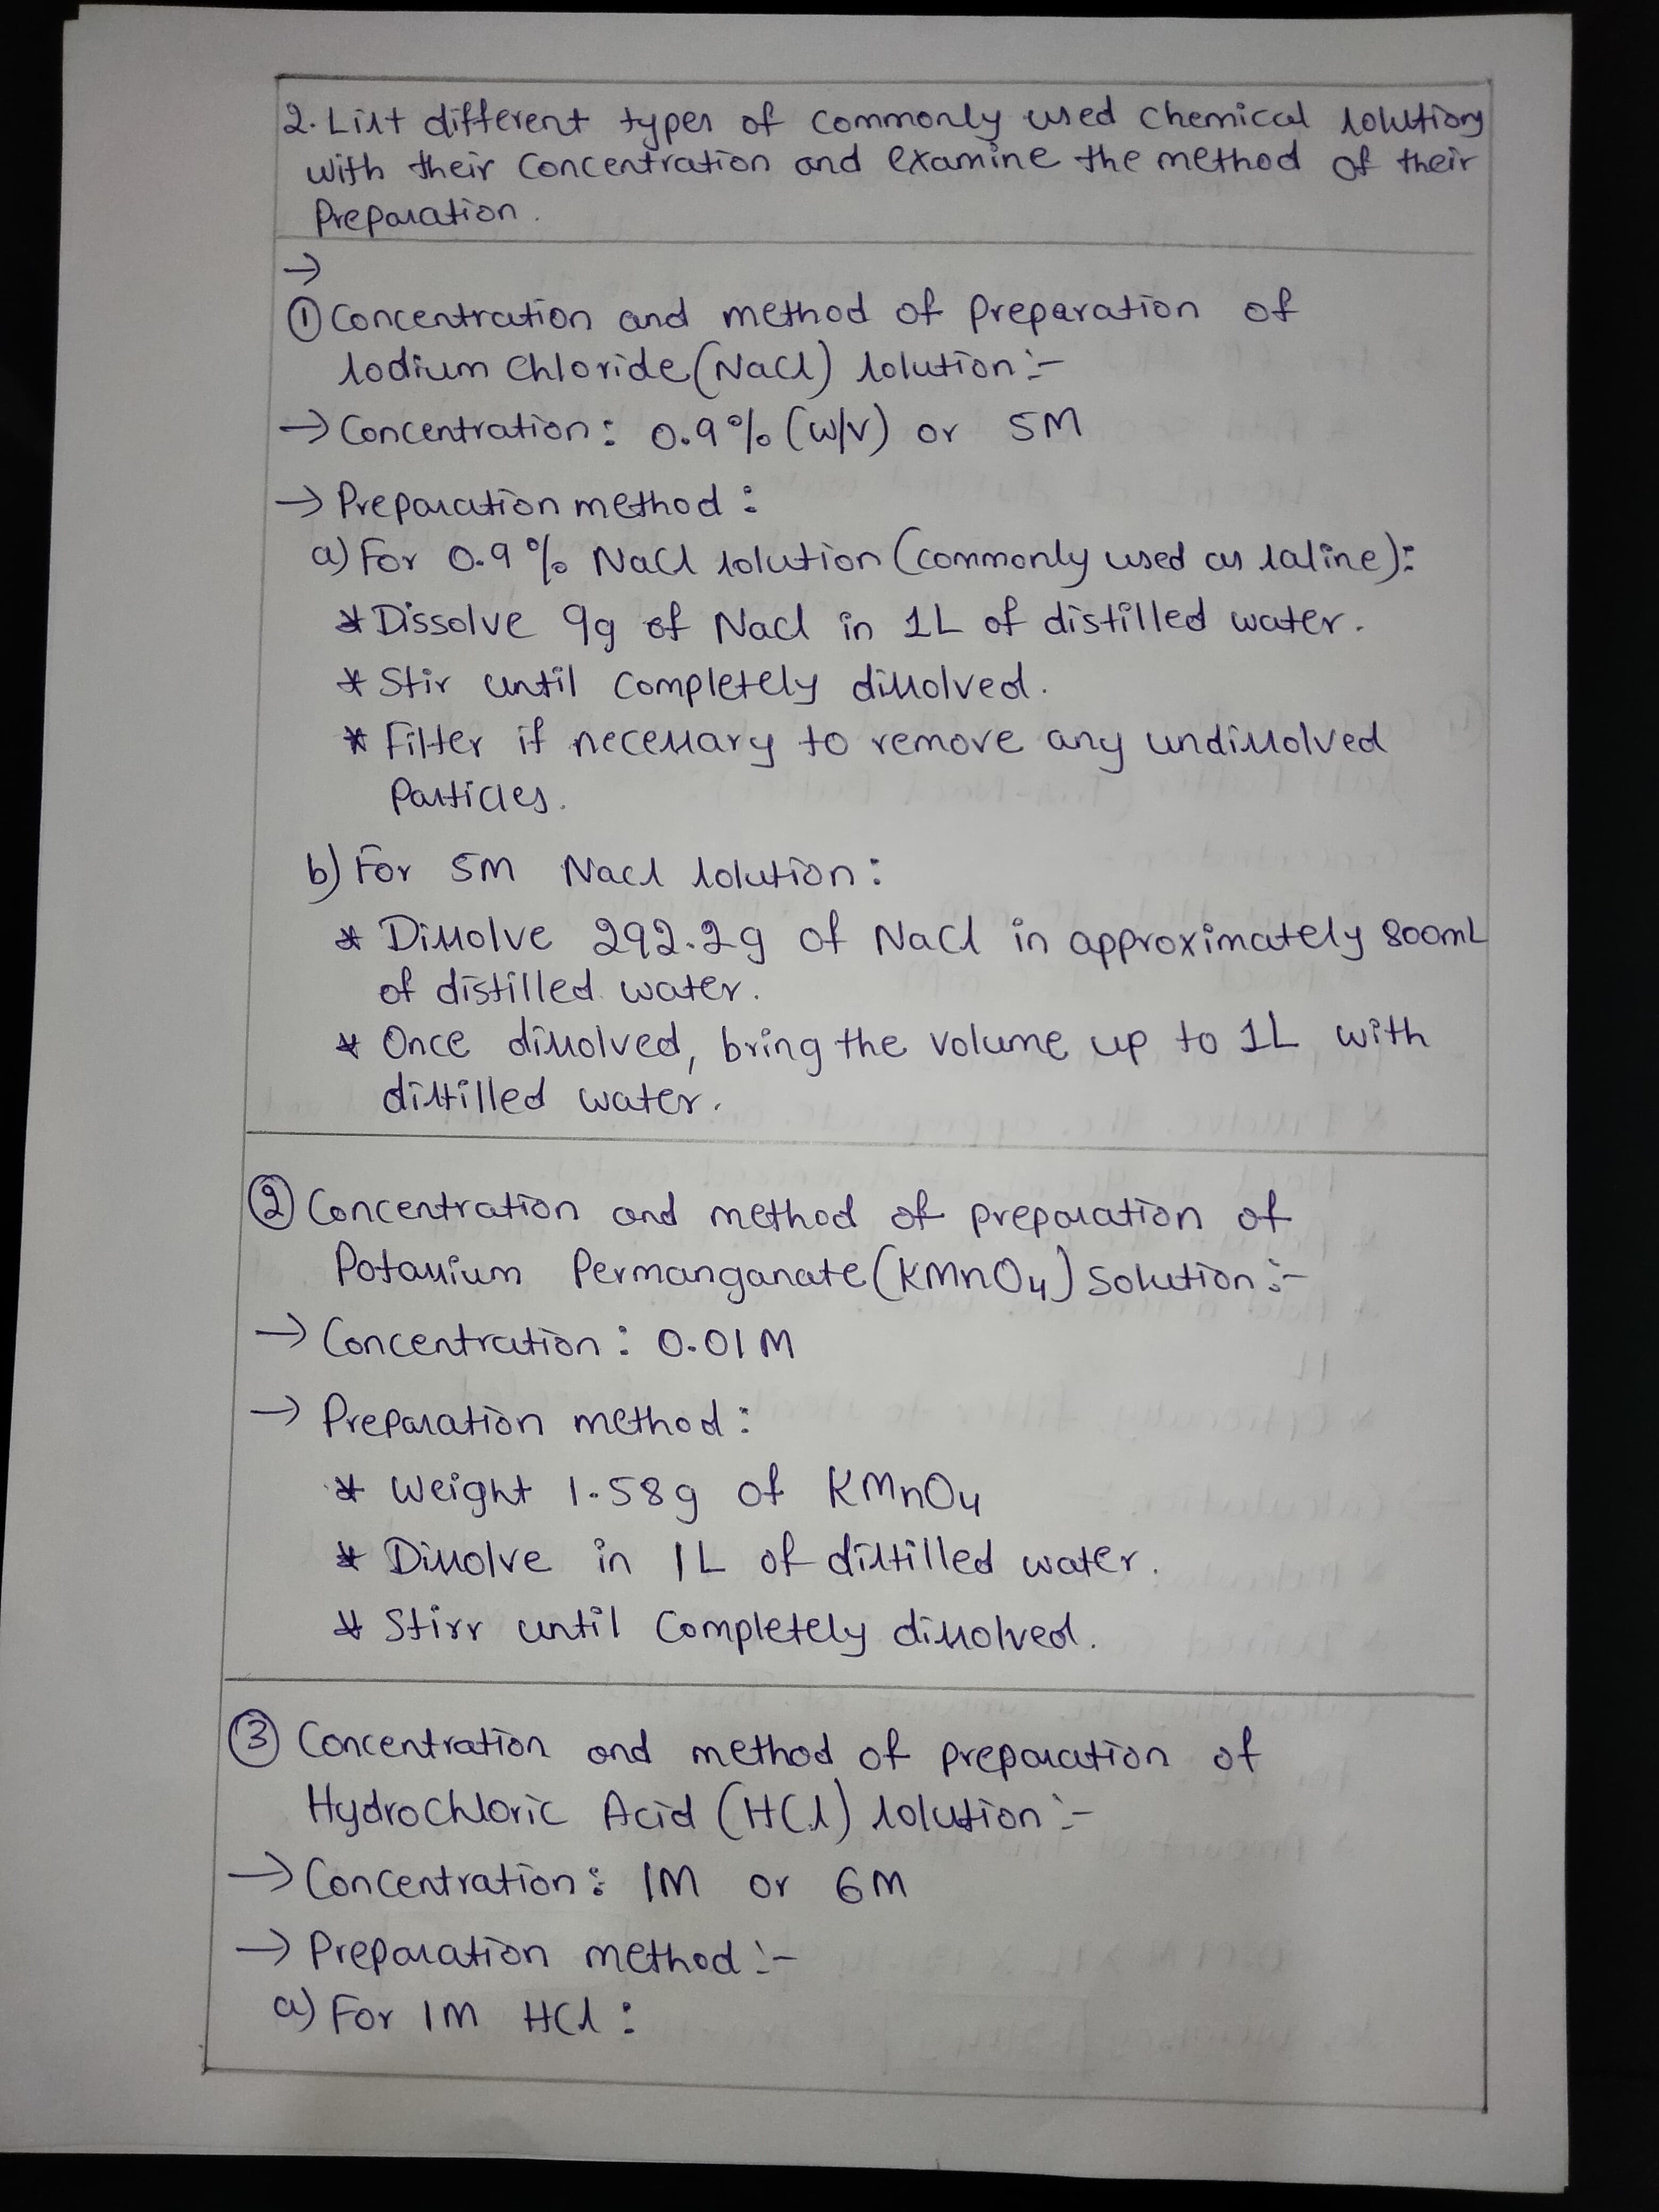 2. List different types of commonly used chemical solutions
with their concentration and examine the method of their
Preparation.
→
① Concentration and method of preparation of
Sodium chloride (NaCl) solution :-
→ Concentration : 0.9% (w/v) or 5M
→ Preparation method :
a) For 0.9% NaCl solution (commonly used as saline):
* Dissolve 9g of NaCl in 1L of distilled water.
* Stir until completely dissolved.
* Filter if necessary to remove any undissolved
Particles.
b) For 5M NaCl solution :
* Dissolve 292.2g of NaCl in approximately 800mL
of distilled water.
* Once dissolved, bring the volume up to 1L with
distilled water.
② Concentration and method of preparation of
Potassium Permanganate (KMnO4) Solution :-
→ Concentration : 0.01M
→ Preparation method :
* Weight 1.58g of KMnO4
* Dissolve in 1L of distilled water.
* Stirr until completely dissolved.
③ Concentration and method of preparation of
Hydrochloric Acid (HCl) solution :-
→ Concentration : 1M or 6M
→ Preparation method :-
a) For 1M HCl :